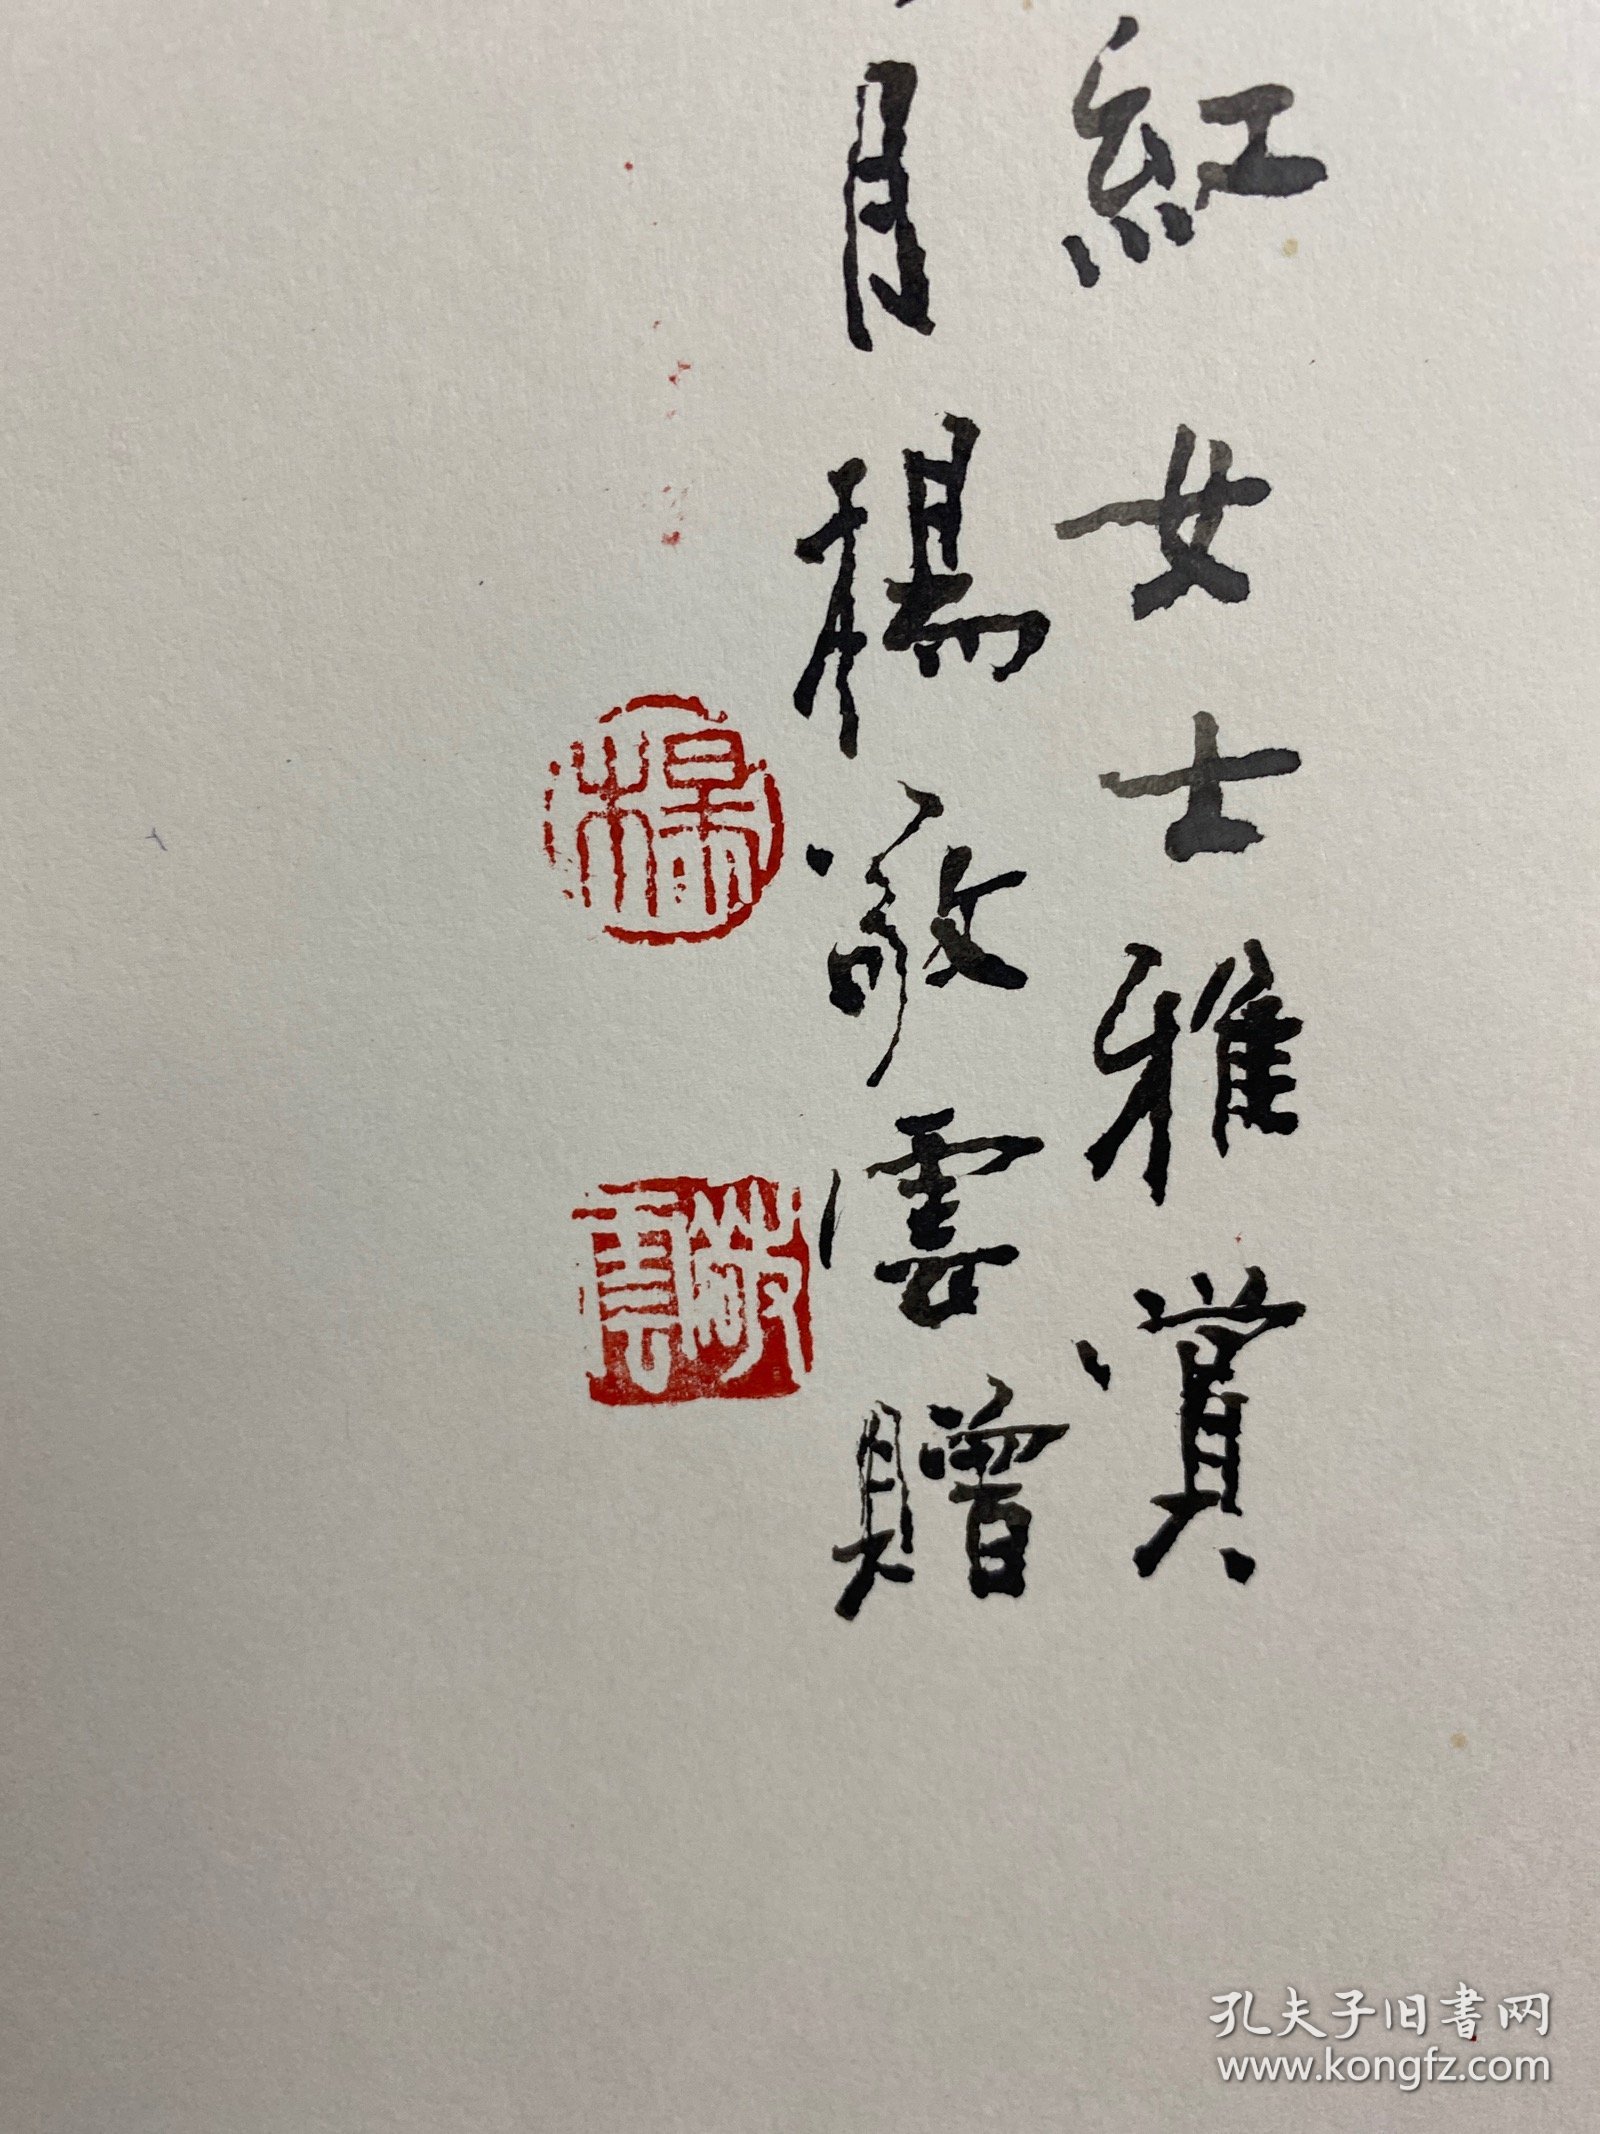 紅女士雅賞
月楊敬雲贈
楊
敬雲
孔夫子旧書网
www.kongfz.com